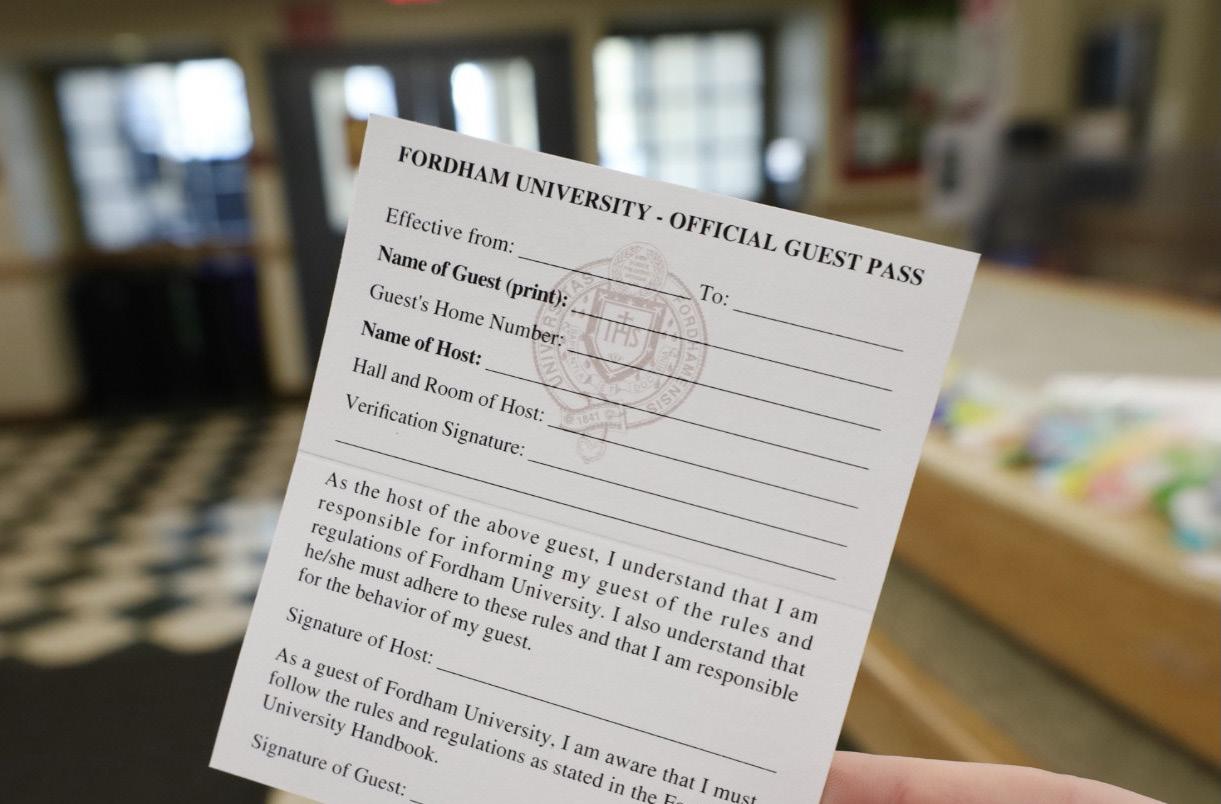 FORDHAM UNIVERSITY - OFFICIAL GUEST PASS
Effective from: To:
Name of Guest (print):
Guest's Home Number:
Name of Host:
Hall and Room of Host:
Verification Signature:
As the host of the above guest, I understand that I am
responsible for informing my guest of the rules and
regulations of Fordham University. I also understand that
he/she must adhere to these rules and that I am responsible
for the behavior of my guest.
Signature of Host:
As a guest of Fordham University, I am aware that I must
follow the rules and regulations as stated in the
University Handbook.
Signature of Guest:
UNIVERSITAS FORDHAMENSIS
IHS
1841